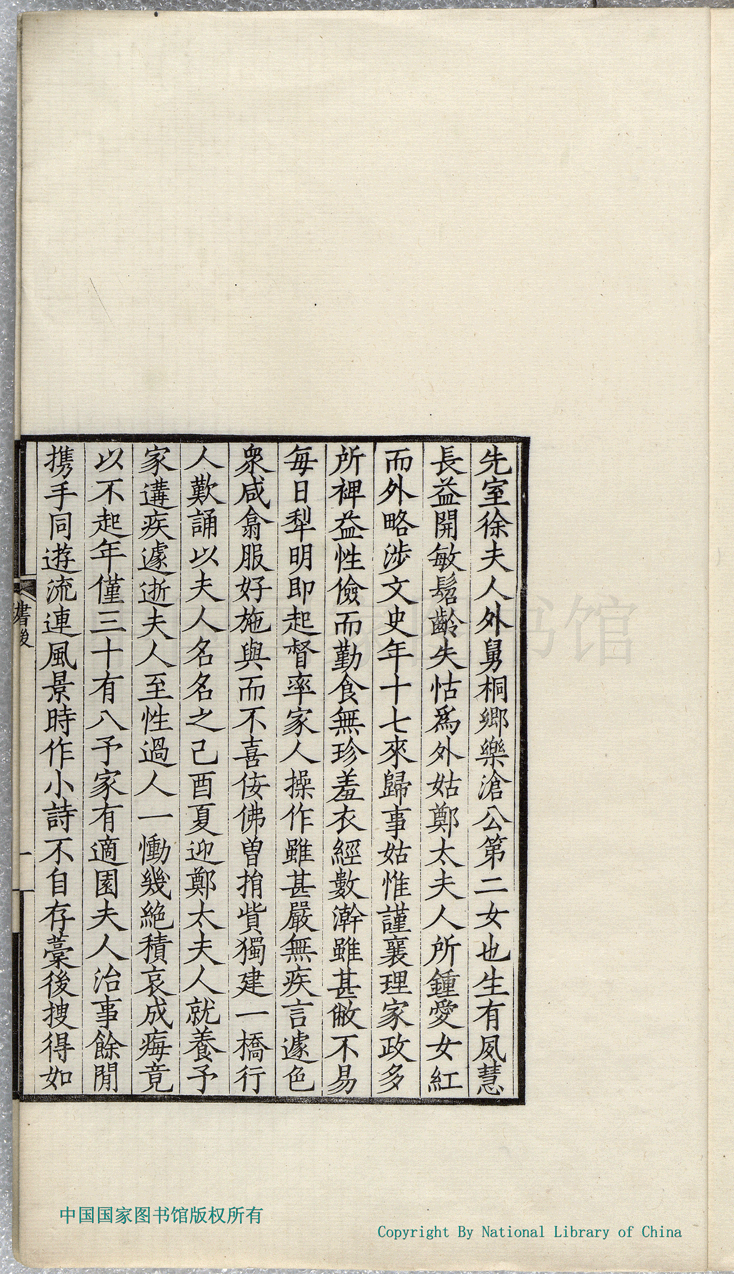 先室徐夫人外舅桐鄉樂滄公第二女也生有夙慧
長益開敏髫齡失怙爲外姑鄭太夫人所鍾愛女紅
而外略涉文史年十七來歸事姑惟謹襄理家政多
所裨益性儉而勤食無珍羞衣經數澣雖甚敝不易
每日犁明即起督率家人操作雖甚嚴無疾言遽色
衆咸翕服好施與而不喜佞佛曽捐貲獨建一橋行
人歎誦以夫人名名之己酉夏迎鄭太夫人就養予
家遘疾遽逝夫人至性過人一慟幾絶積哀成痗竟
以不起年僅三十有八予家有適園夫人治事餘閒
攜手同遊流連風景時作小詩不自存藁後搜得如
書後
一
中国国家图书馆版权所有
Copyright By National Library of China